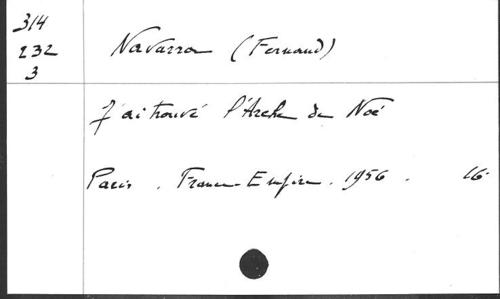 314
232
3
Navarra (Fernand)
J'ai trouvé l'Arche de Noé
Paris . France-Empire . 1956 . 16°